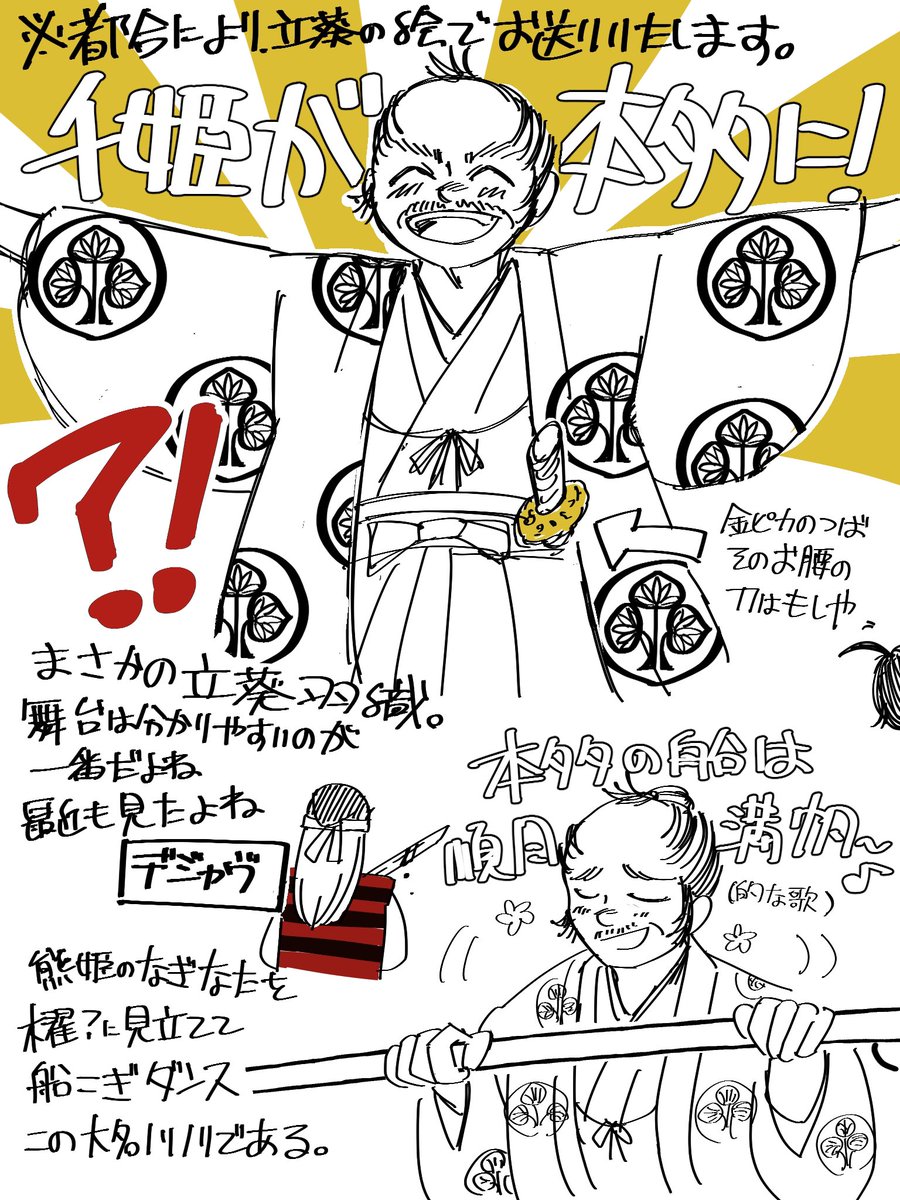 ※都合により立葵の絵でお送りいたします。
千姫が本多に!
?!
金ピカのつば
そのお腰の
刀はもしや
まさかの立葵羽織。
舞台は分かりやすいのが
一番だよね
最近も見たよね
デジャヴ
本多の船は
順風満帆〜♪
(的な歌)
熊姫のなぎなたを
櫂?に見立てて
船こぎダンス
この大名ノリノリである。